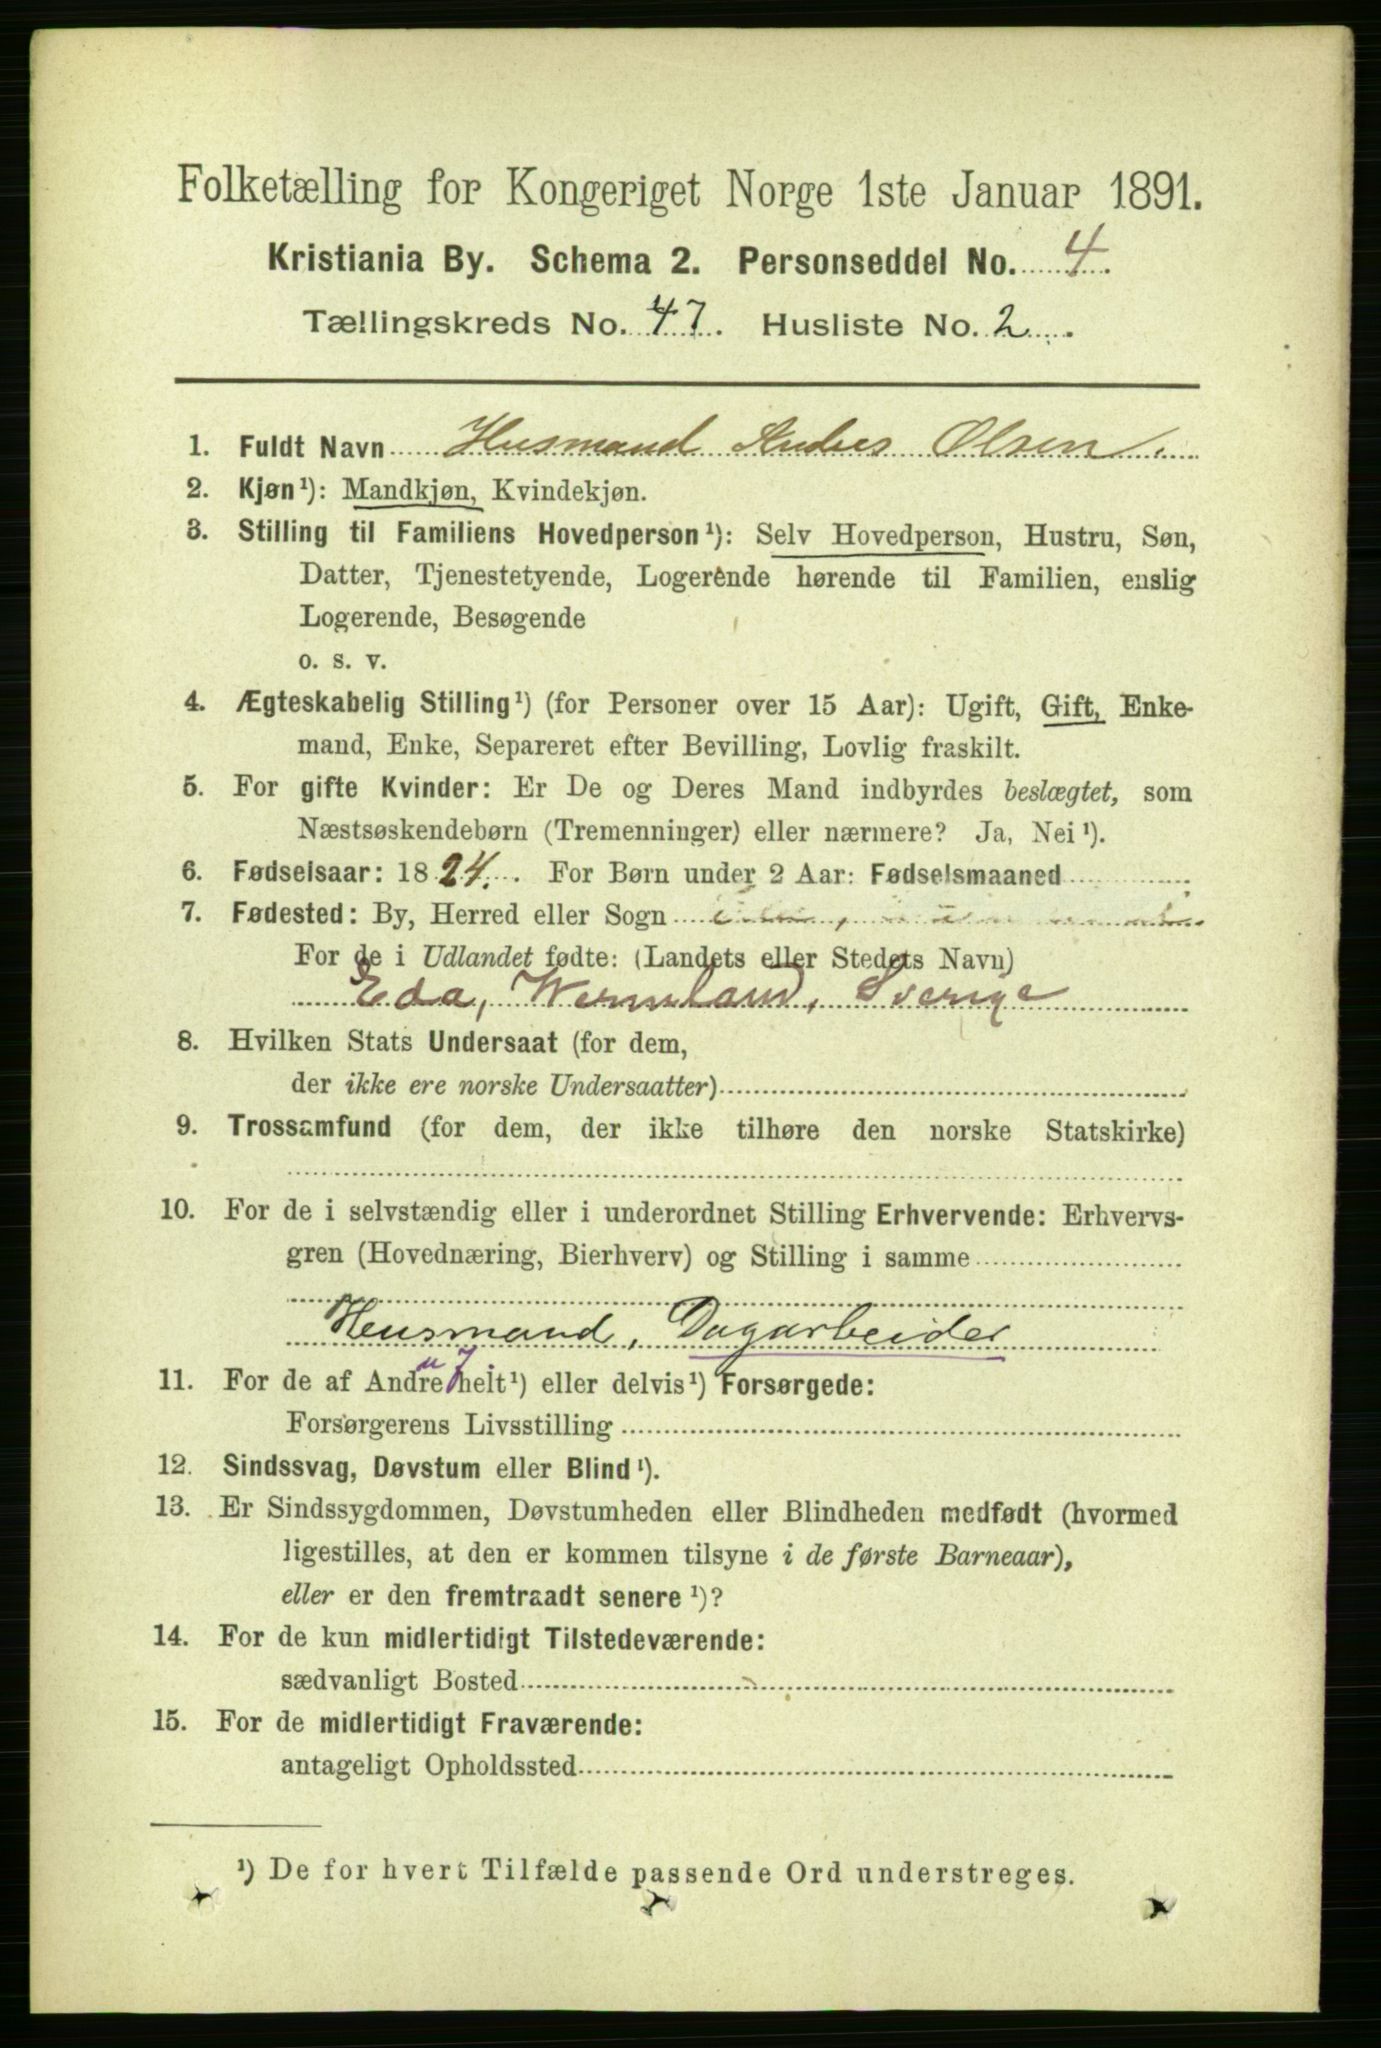 Folketælling for Kongeriget Norge 1ste Januar 1891.
Kristiania By. Schema 2. Personseddel No. 4.
Tællingskreds No. 47. Husliste No. 2.
1. Fuldt Navn Husmand Andres Olsen.
2. Kjøn¹): Mandkjøn, Kvindekjøn.
3. Stilling til Familiens Hovedperson¹): Selv Hovedperson, Hustru, Søn,
Datter, Tjenestetyende, Logerende hørende til Familien, enslig
Logerende, Besøgende
o. s. v.
4. Ægteskabelig Stilling¹) (for Personer over 15 Aar): Ugift, Gift, Enke-
mand, Enke, Separeret efter Bevilling, Lovlig fraskilt.
5. For gifte Kvinder: Er De og Deres Mand indbyrdes beslægtet, som
Næstsøskendebørn (Tremenninger) eller nærmere? Ja, Nei¹).
6. Fødselsaar: 1824. For Børn under 2 Aar: Fødselsmaaned
7. Fødested: By, Herred eller Sogn
For de i Udlandet fødte: (Landets eller Stedets Navn)
Eda, Wermland, Sverige
8. Hvilken Stats Undersaat (for dem,
der ikke ere norske Undersaatter)
9. Trossamfund (for dem, der ikke tilhøre den norske Statskirke)
10. For de i selvstændig eller i underordnet Stilling Erhvervende: Erhvervs-
gren (Hovednæring, Bierhverv) og Stilling i samme
Husmand, Dagarbeider
11. For de af Andre helt¹) eller delvis¹) Forsørgede:
Forsørgerens Livsstilling
12. Sindssvag, Døvstum eller Blind¹).
13. Er Sindssygdommen, Døvstumheden eller Blindheden medfødt (hvormed
ligestilles, at den er kommen tilsyne i de første Barneaar),
eller er den fremtraadt senere¹)?
14. For de kun midlertidigt Tilstedeværende:
sædvanligt Bosted
15. For de midlertidigt Fraværende:
antageligt Opholdssted
¹) De for hvert Tilfælde passende Ord understreges.